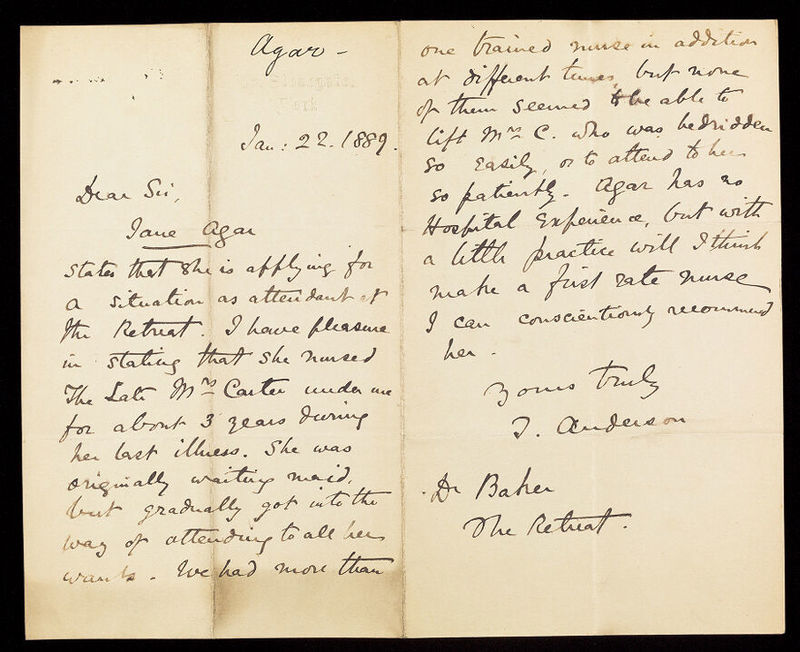 Agar -
York
Jan: 22. 1889.
Dear Sir,
Jane Agar
states that she is applying for
a situation as attendant at
the Retreat. I have pleasure
in stating that she nursed
The Late Mrs Carter under me
for about 3 years during
her last illness. She was
originally waiting maid,
but gradually got into the
way of attending to all her
wants. We had more than
one trained nurse in addition
at different times, but none
of them seemed to be able to
lift Mrs C. who was bedridden
so easily, or to attend to her
so patiently. Agar has no
Hospital Experience, but with
a little practice will I think
make a first rate nurse
I can conscientiously recommend
her.
Yours truly
T. Anderson
Dr Baker
The Retreat.